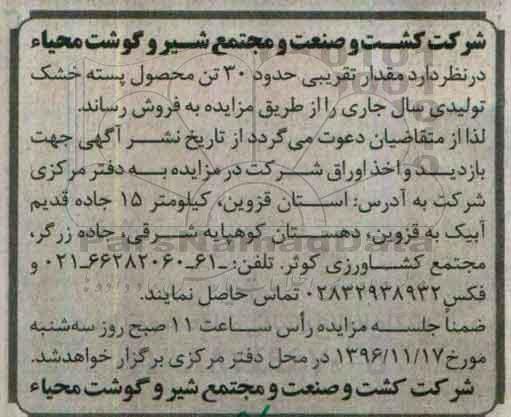 شرکت کشت و صنعت و مجتمع شیر و گوشت محیاء
درنظردارد مقدار تقریبی حدود ۳۰ تن محصول پسته خشک
تولیدی سال جاری را از طریق مزایده به فروش رساند.
لذا از متقاضیان دعوت می‌گردد از تاریخ نشر آگهی جهت
بازدید و اخذ اوراق شرکت در مزایده به دفتر مرکزی
شرکت به آدرس: استان قزوین، کیلومتر ۱۵ جاده قدیم
آبیک به قزوین، دهستان کوهپایه شرقی، جاده زرگر،
مجتمع کشاورزی کوثر. تلفن: ۶۱ـ۶۶۲۸۲۰۶۰ـ۰۲۱ و
فکس ۰۲۸۳۲۹۳۸۹۳۲ تماس حاصل نمایند.
ضمناً جلسه مزایده رأس ساعت ۱۱ صبح روز سه‌شنبه
مورخ ۱۳۹۶/۱۱/۱۷ در محل دفتر مرکزی برگزار خواهدشد.
شرکت کشت و صنعت و مجتمع شیر و گوشت محیاء